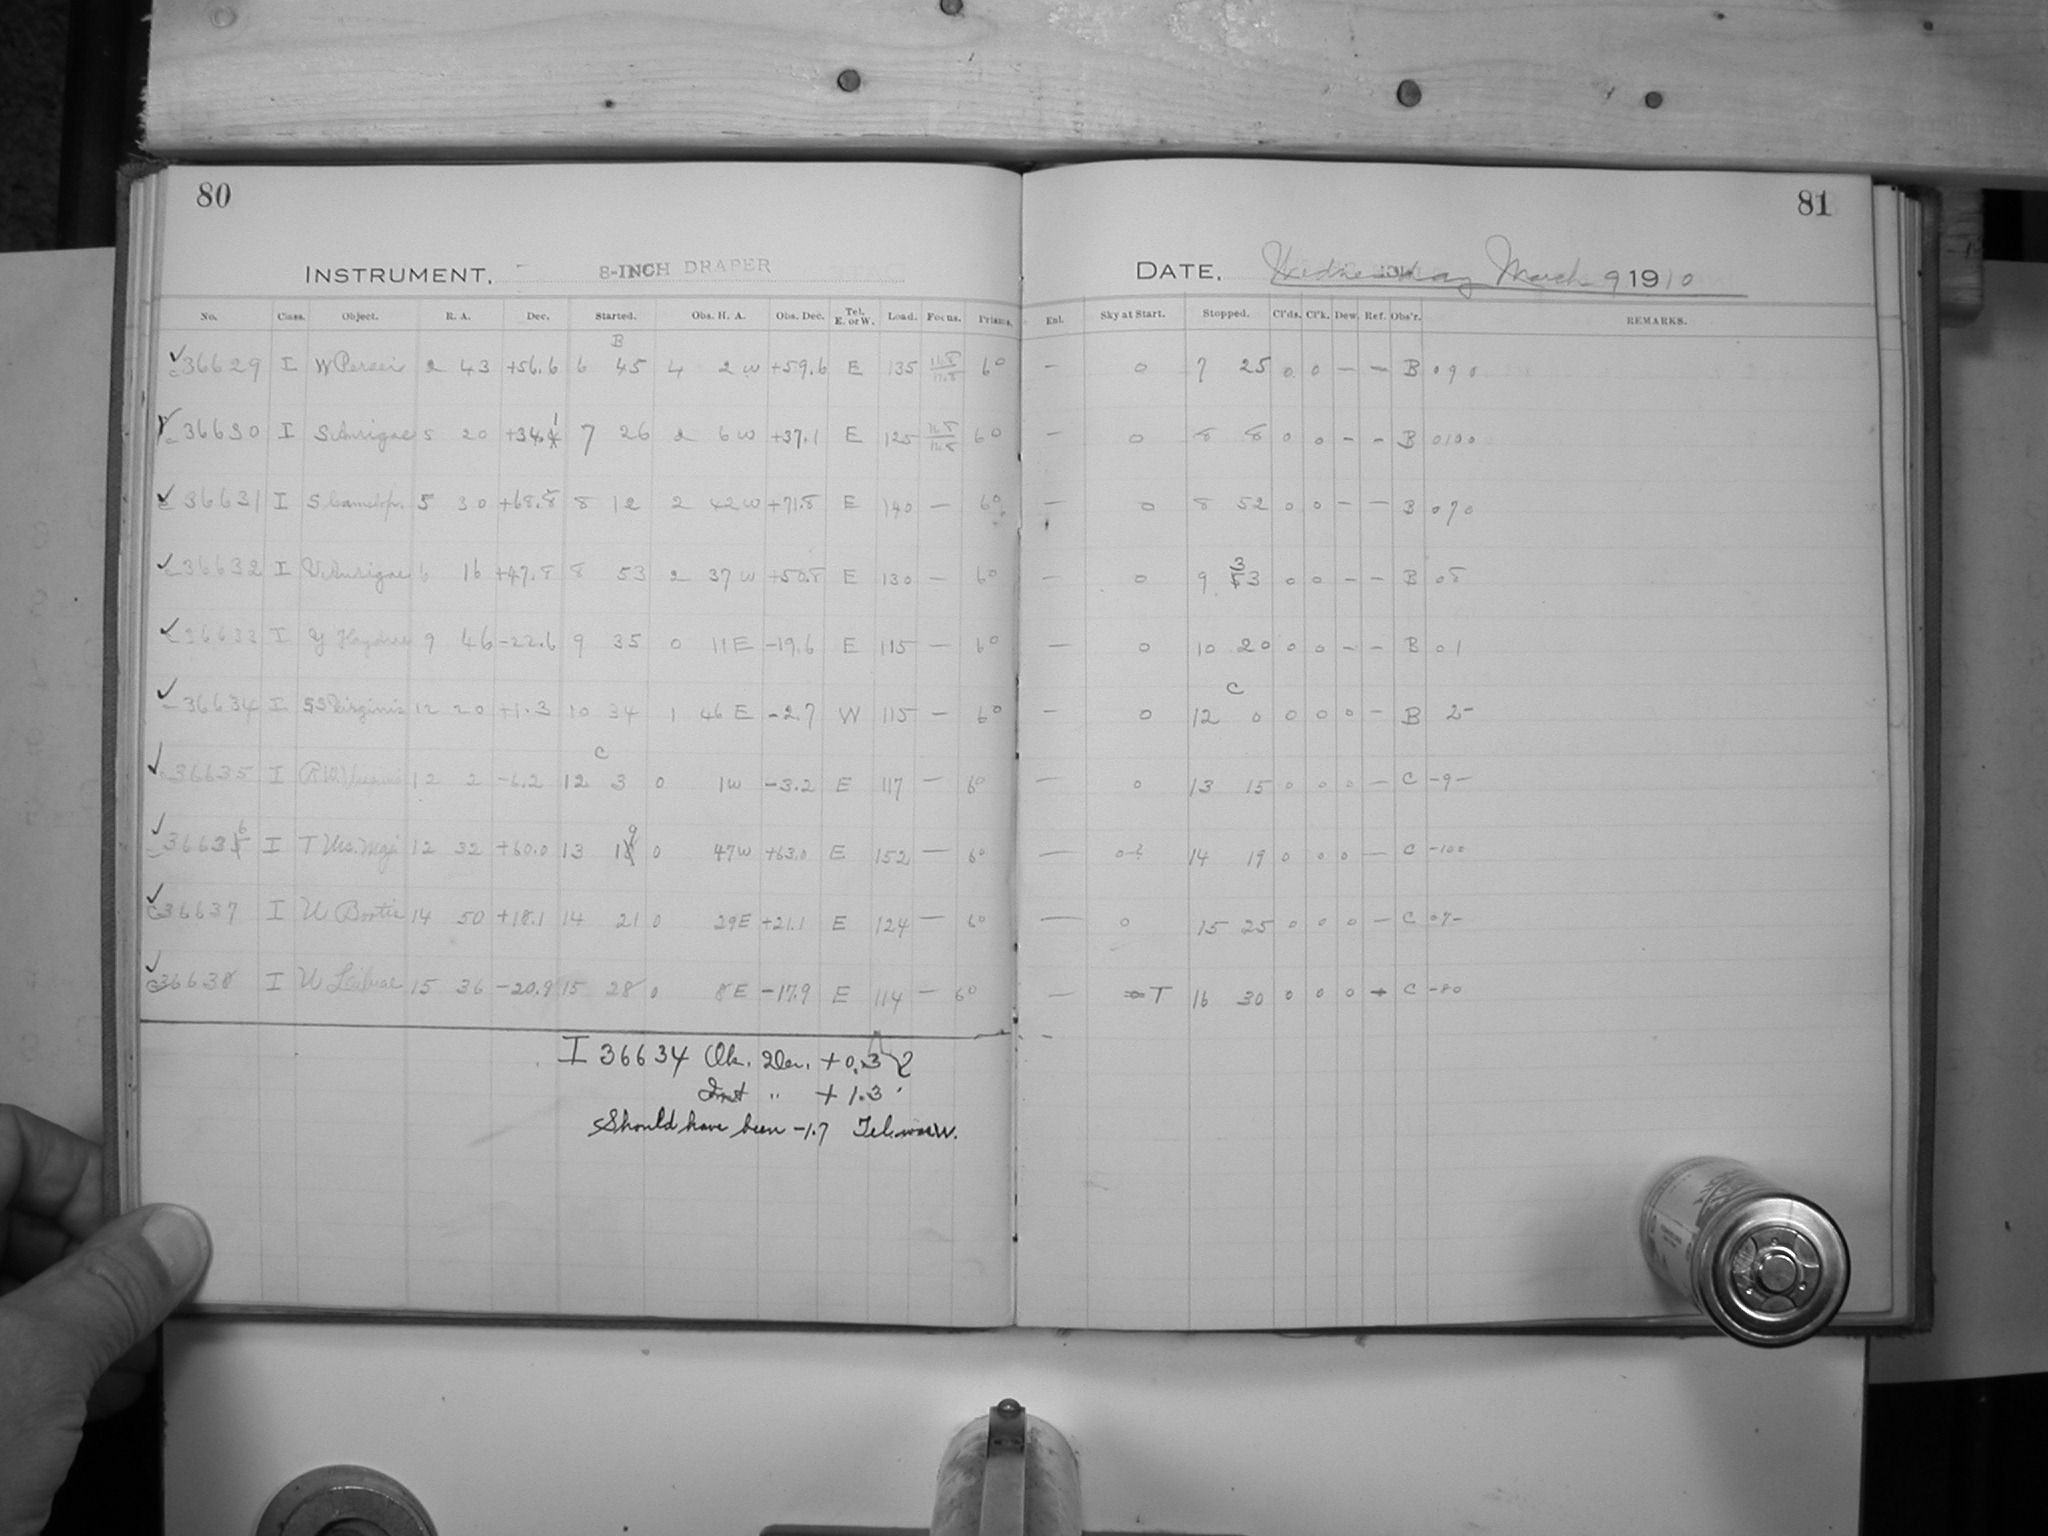 80
INSTRUMENT, 8-INCH DRAPER
No. Class. Object. R. A. Dec. Started. Obs. H. A. Obs. Dec. Tel. E. or W. Load. Focus. Prisms.
B
36629 I W Persei 2 43 +56.6 6 45 4 2 W +59.6 E 135 60
36630 I S Aurigae 5 20 +34.1 7 26 2 6 W +37.1 E 125 60
36631 I S Camelop. 5 30 +68.8 8 12 2 42 W +71.8 E 140 — 60
36632 I V Aurigae 6 16 +47.8 8 53 2 37 W +50.8 E 130 — 60
36633 I Y Hydrae 9 46 -22.6 9 35 0 11 E -19.6 E 115 — 60
36634 I SS Virginis 12 20 +1.3 10 34 1 46 E -2.7 W 115 — 60
C
36635 I 12 2 -6.2 12 3 0 1 W -3.2 E 117 — 60
36636 I T Urs. Maj. 12 32 +60.0 13 19 0 47 W +63.0 E 152 — 60
36637 I U Bootis 14 50 +18.1 14 21 0 29 E +21.1 E 124 — 60
36638 I U Librae 15 36 -20.9 15 28 0 8 E -17.9 E 114 — 60
I 36634 Ob. Dec. +0.3
Inst " +1.3
Should have been -1.7 Tel. was W.
81
DATE, Wednesday March 9 1910
Enl. Sky at Start. Stopped. Cl'ds. Cl'k. Dew. Ref. Obs'r. REMARKS.
— 0 7 25 0 0 — — B 090
— 0 8 8 0 0 — — B 0100
— 0 8 52 0 0 — — B 070
— 0 9 33 0 0 — — B 08
— 0 10 20 0 0 — — B 01
C
— 0 12 0 0 0 0 — B 2-
— 0 13 15 0 0 0 — C -9-
— 14 19 0 0 0 — C -100
— 0 15 25 0 0 0 — C 07-
— T 16 30 0 0 0 C -80